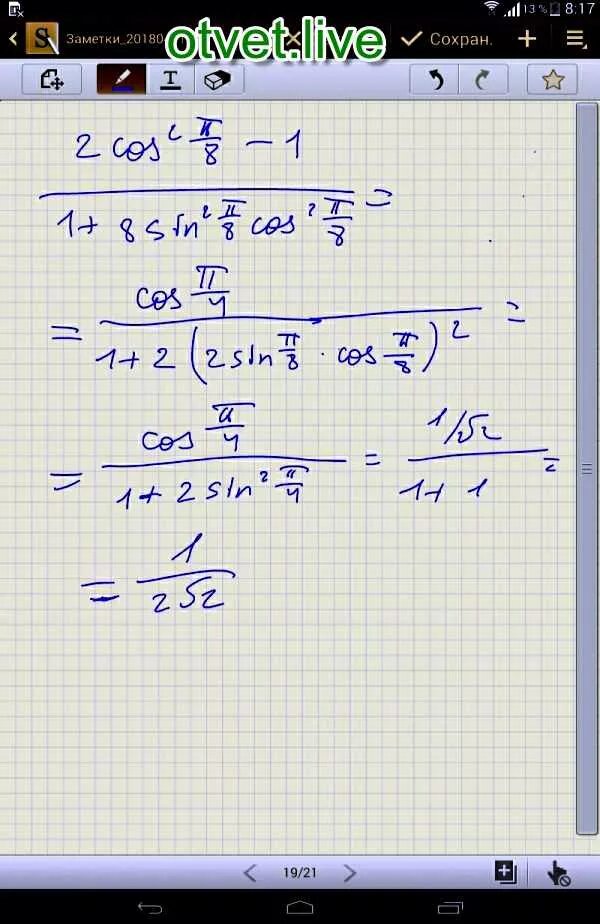 13 % 8:17
S Заметки_20180 Сохран.
otvet.live
T
2 cos² π/8 − 1
1 + 8 sin² π/8 cos² π/8 =
= cos π/4
1 + 2 (2 sin π/8 · cos π/8)² =
= cos π/4 / 1 + 2 sin² π/4 = 1/√2 / 1 + 1 =
= 1 / 2√2
19/21